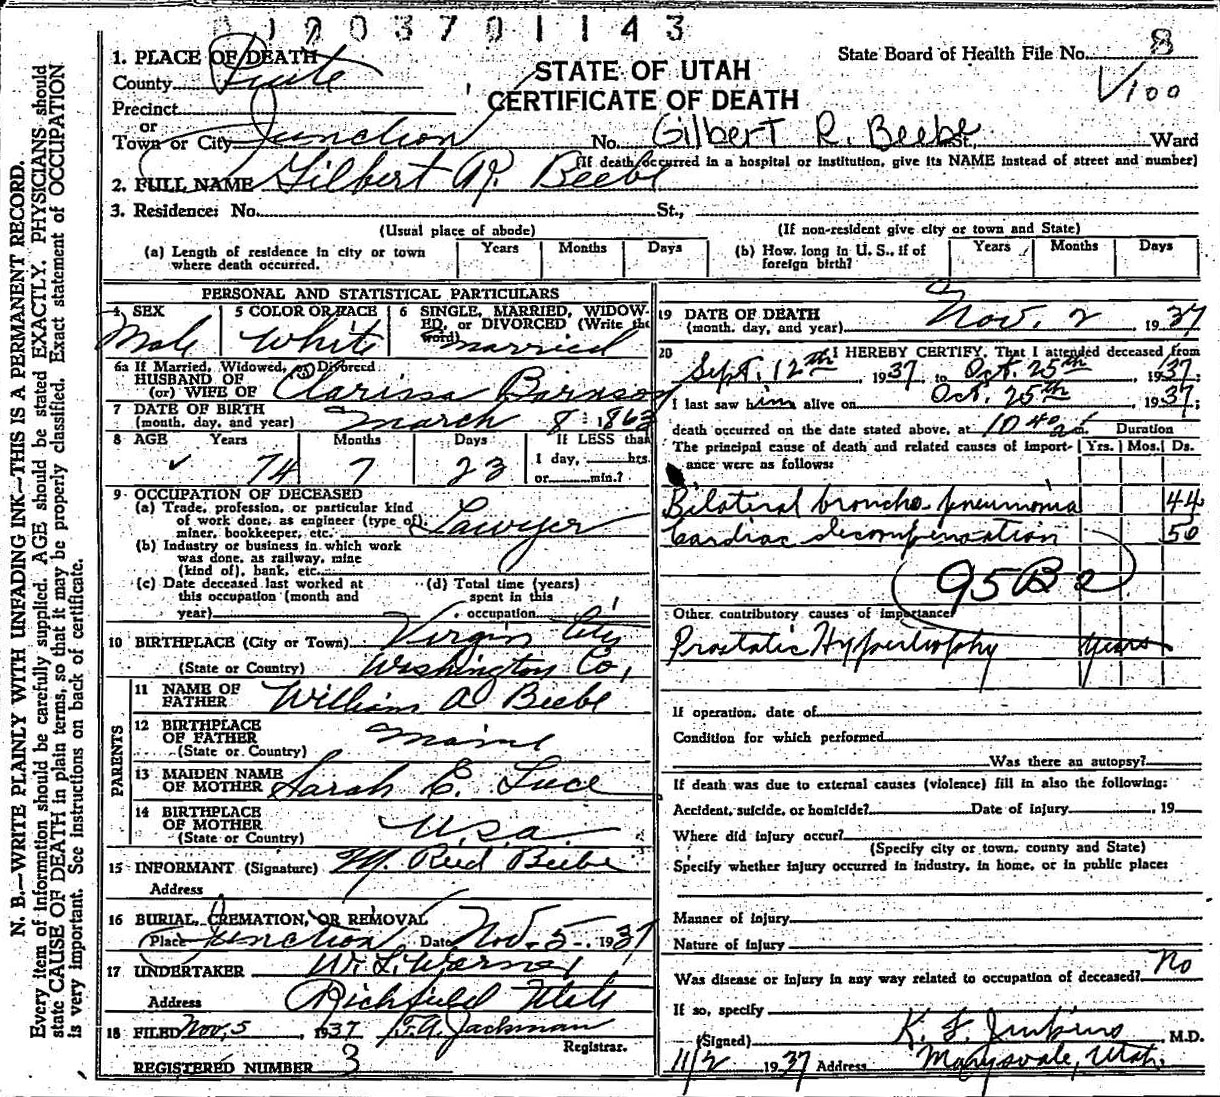 1003701143
1. PLACE OF DEATH
State Board of Health File No. 8
County Piute
STATE OF UTAH
V100
Precinct
CERTIFICATE OF DEATH
or
Town or City Junction No. Gilbert R. Beebe St., Ward
(If death occurred in a hospital or institution, give its NAME instead of street and number)
2. FULL NAME Gilbert R. Beebe
3. Residence: No. St.,
(Usual place of abode) (If non-resident give city or town and State)
(a) Length of residence in city or town where death occurred. Years Months Days
(b) How long in U. S., if of foreign birth? Years Months Days
PERSONAL AND STATISTICAL PARTICULARS
4 SEX Male
5 COLOR OR RACE White
6 SINGLE, MARRIED, WIDOWED, or DIVORCED (Write the word) married
6a If Married, Widowed, or Divorced
HUSBAND OF
(or) WIFE OF Clarissa Barnson
7 DATE OF BIRTH
(month, day, and year) March 8 - 1863
8 AGE Years 74 Months 7 Days 23 If LESS than
1 day, hrs.
or min.?
9 OCCUPATION OF DECEASED
(a) Trade, profession, or particular kind
of work done, as engineer (type of), Lawyer
miner, bookkeeper, etc.
(b) Industry or business in which work
was done, as railway, mine
(kind of), bank, etc.
(c) Date deceased last worked at
this occupation (month and
year)
(d) Total time (years)
spent in this
occupation
10 BIRTHPLACE (City or Town) Virgin City
(State or Country) Washington Co.,
PARENTS
11 NAME OF
FATHER William A Beebe
12 BIRTHPLACE
OF FATHER Maine
(State or Country)
13 MAIDEN NAME
OF MOTHER Sarah E. Luce
14 BIRTHPLACE
OF MOTHER U.S.A
(State or Country)
15 INFORMANT (Signature) M. Reed Beebe
Address
16 BURIAL, CREMATION, OR REMOVAL
Place Junction Date Nov. 5 - 1937
17 UNDERTAKER W. L. Warner
Address Richfield Utah
18 FILED Nov. 5 1937 Jackman
Registrar.
REGISTERED NUMBER 3
19 DATE OF DEATH
(month, day, and year) Nov. 2, 1937
20 I HEREBY CERTIFY, That I attended deceased from
Sept. 12th 1937 to Oct. 25th, 1937;
I last saw him alive on Oct. 25th, 1937;
death occurred on the date stated above, at 10 Duration
The principal cause of death and related causes of importance were as follows: Yrs. Mos. Ds.
Bilateral broncho pneumonia 44
Cardiac decompensation 50
95B
Other contributory causes of importance
Prostatic Hypertrophy years
If operation, date of
Condition for which performed
Was there an autopsy?
If death was due to external causes (violence) fill in also the following:
Accident, suicide, or homicide? Date of injury , 19
Where did injury occur?
(Specify city or town, county and State)
Specify whether injury occurred in industry, in home, or in public place:
Manner of injury
Nature of injury
Was disease or injury in any way related to occupation of deceased? No
If so, specify
(Signed) K. F. Jenkins M.D.
11/2 1937 Address Marysvale, Utah
N. B.—WRITE PLAINLY WITH UNFADING INK—THIS IS A PERMANENT RECORD.
Every item of information should be carefully supplied. AGE should be stated EXACTLY. PHYSICIANS should
state CAUSE OF DEATH in plain terms, so that it may be properly classified. Exact statement of OCCUPATION
is very important. See instructions on back of certificate.